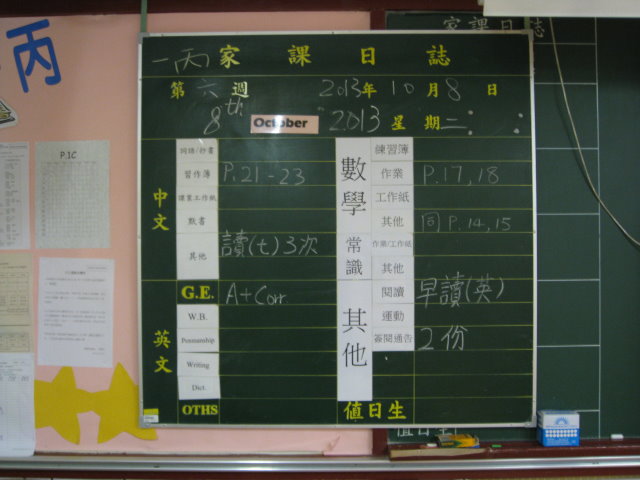 丙
P.1C
家課日誌
一丙家課日誌
第六週 2013年10月8日
8th October 2013 星期二
中文
詞語/抄書
習作簿 P.21-23
課業工作紙
默書
其他 讀(七)3次
英文
G.E. A+Corr
W.B.
Penmanship
Writing
Dict.
OTHS
數學
練習簿
作業 P.17,18
工作紙
其他 同P.14,15
常識
作業/工作紙
其他
其他
閱讀 早讀(英)
運動
簽閱通告 2份
值日生
值日生